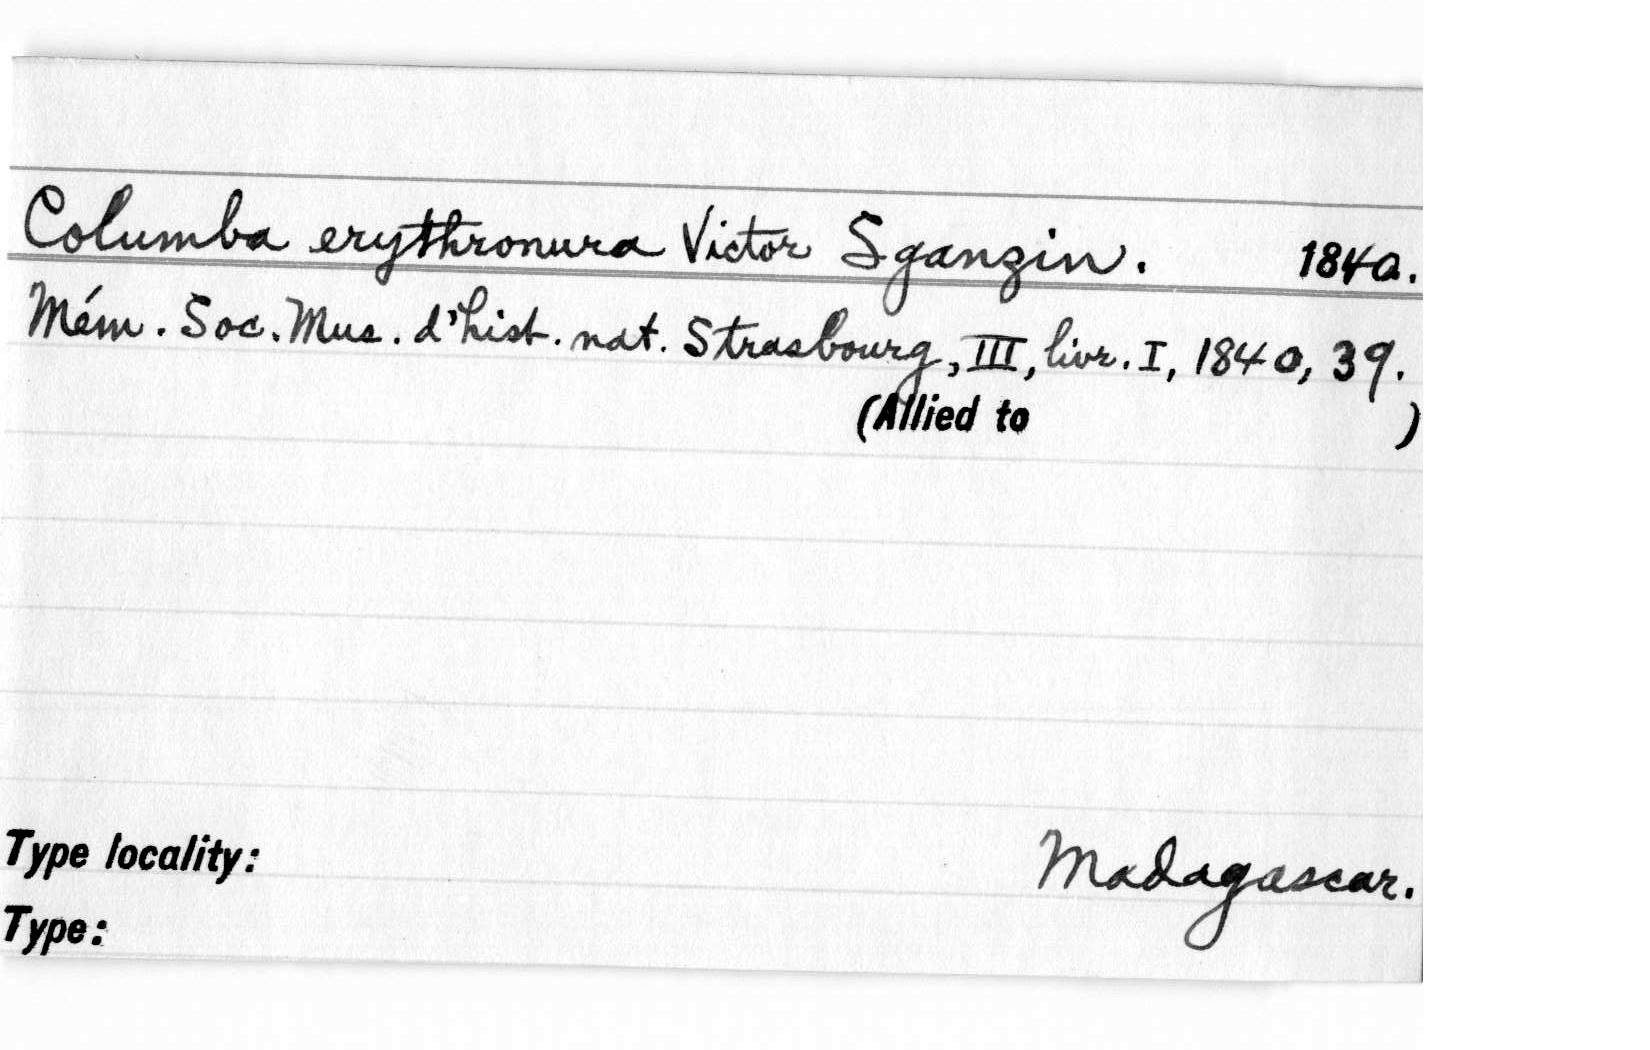 Columba erythronura Victor Sganzin. 1840.
Mém. Soc. Mus. d'hist. nat. Strasbourg, III, livr. I, 1840, 39.
(Allied to )
Type locality: Madagascar.
Type: